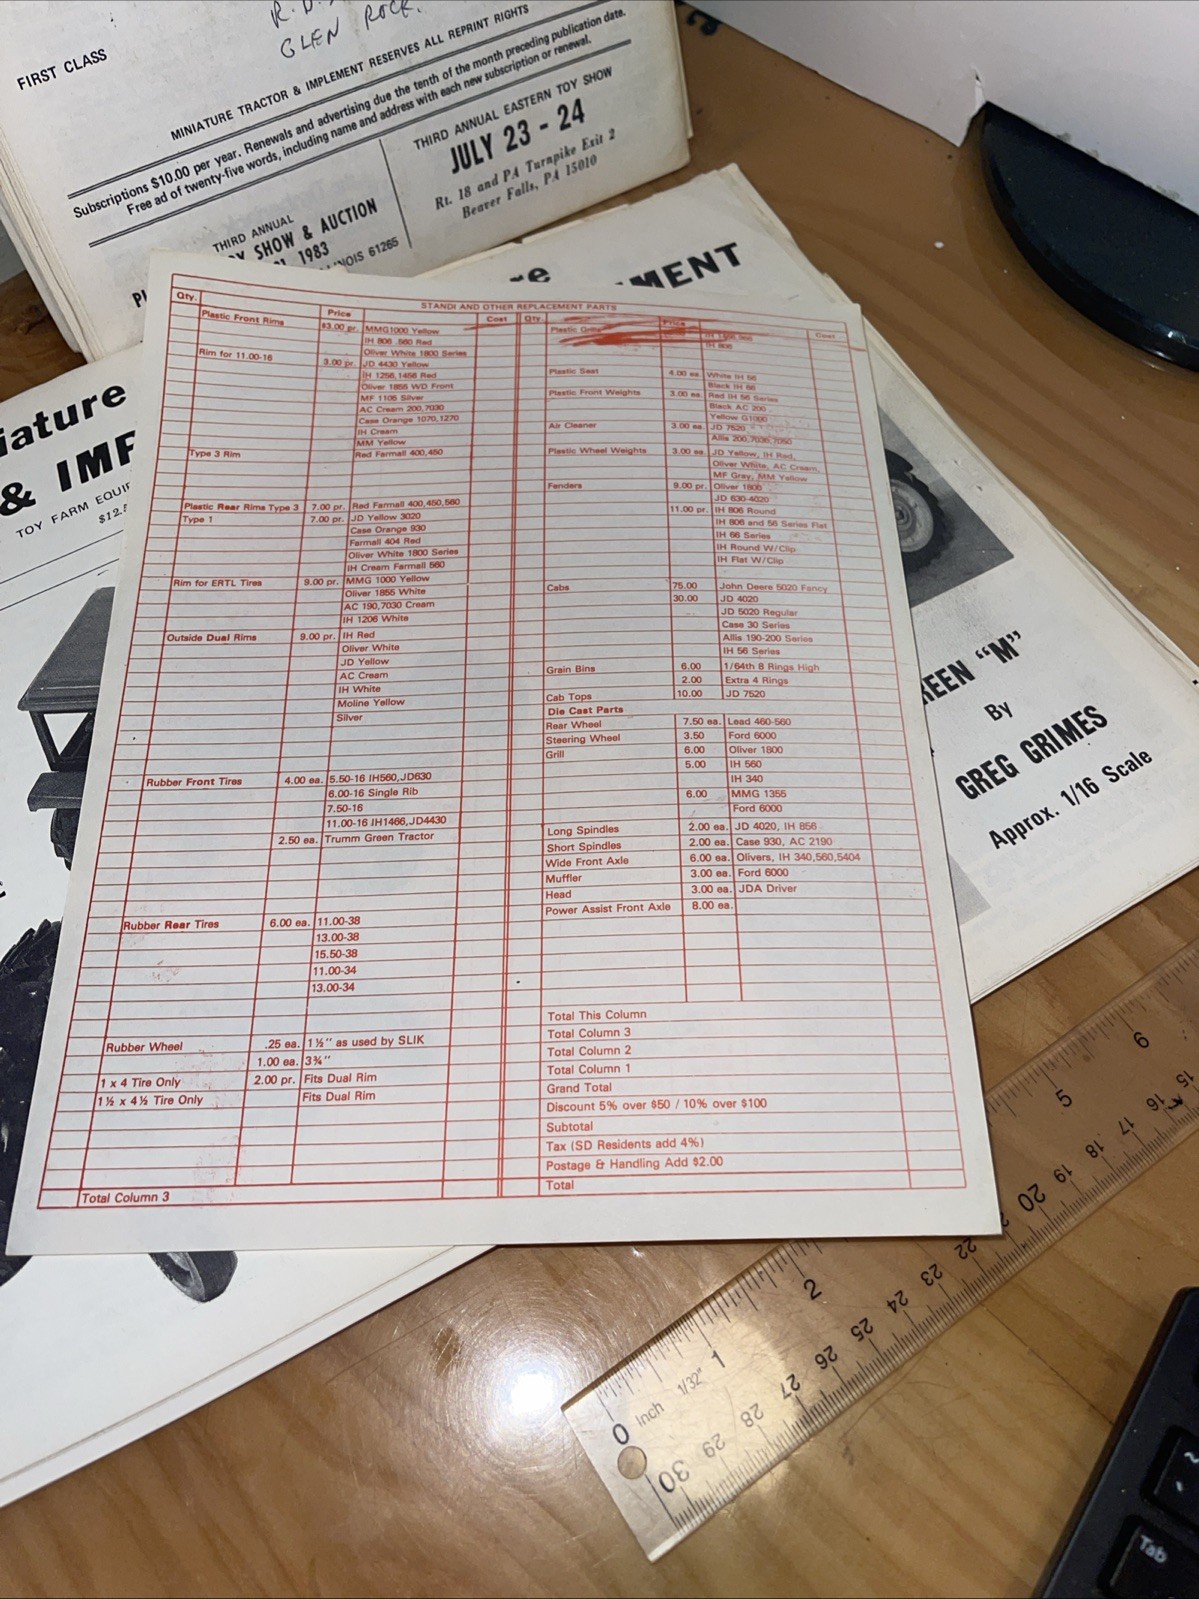 FIRST CLASS
GLEN ROCK.
MINIATURE TRACTOR & IMPLEMENT RESERVES ALL REPRINT RIGHTS
Subscriptions $10.00 per year. Renewals and advertising due the tenth of the month preceding publication date.
Free ad of twenty-five words, including name and address with each new subscription or renewal.
THIRD ANNUAL
SHOW & AUCTION
1983
61265
THIRD ANNUAL EASTERN TOY SHOW
JULY 23 - 24
Rt. 18 and PA Turnpike Exit 2
Beaver Falls, PA 15010
iature
& IMP
TOY FARM EQUIP
$12.5
re
MENT
REEN "M"
By
GREG GRIMES
Approx. 1/16 Scale
STANDI AND OTHER REPLACEMENT PARTS
Qty. Price Cost
Plastic Front Rims $3.00 pr. MMG1000 Yellow
IH 806 .560 Red
Oliver White 1800 Series
Rim for 11.00-16 3.00 pr. JD 4430 Yellow
IH 1256,1456 Red
Oliver 1855 WD Front
MF 1106 Silver
AC Cream 200,7030
Case Orange 1070,1270
IH Cream
MM Yellow
Type 3 Rim Red Farmall 400,450
Plastic Rear Rims Type 3 7.00 pr. Red Farmall 400,450,560
Type 1 7.00 pr. JD Yellow 3020
Case Orange 930
Farmall 404 Red
Oliver White 1800 Series
IH Cream Farmall 560
Rim for ERTL Tires 9.00 pr. MMG 1000 Yellow
Oliver 1855 White
AC 190,7030 Cream
IH 1206 White
Outside Dual Rims 9.00 pr. IH Red
Oliver White
JD Yellow
AC Cream
IH White
Moline Yellow
Silver
Rubber Front Tires 4.00 ea. 5.50-16 IH560,JD630
6.00-16 Single Rib
7.50-16
11.00-16 IH1466,JD4430
2.50 ea. Trumm Green Tractor
Rubber Rear Tires 6.00 ea. 11.00-38
13.00-38
15.50-38
11.00-34
13.00-34
Rubber Wheel .25 ea. 1½" as used by SLIK
1.00 ea. 3¾"
1 x 4 Tire Only 2.00 pr. Fits Dual Rim
1½ x 4½ Tire Only Fits Dual Rim
Total Column 3
Qty. Price Cost
Plastic Grills
IH 806
Plastic Seat 4.00 ea. White IH 56
Black IH 66
Plastic Front Weights 3.00 ea. Red IH 56 Series
Black AC 200
Yellow G1000
Air Cleaner 3.00 ea. JD 7520
Allis 200,7030,7050
Plastic Wheel Weights 3.00 ea. JD Yellow, IH Red,
Oliver White, AC Cream,
MF Gray, MM Yellow
Fenders 9.00 pr. Oliver 1800
JD 630-4020
11.00 pr. IH 806 Round
IH 806 and 56 Series Flat
IH 66 Series
IH Round W/Clip
IH Flat W/Clip
Cabs 75.00 John Deere 5020 Fancy
30.00 JD 4020
JD 5020 Regular
Case 30 Series
Allis 190-200 Series
IH 56 Series
Grain Bins 6.00 1/64th 8 Rings High
2.00 Extra 4 Rings
Cab Tops 10.00 JD 7520
Die Cast Parts
Rear Wheel 7.50 ea. Lead 460-560
Steering Wheel 3.50 Ford 6000
Grill 6.00 Oliver 1800
5.00 IH 560
IH 340
6.00 MMG 1355
Ford 6000
Long Spindles 2.00 ea. JD 4020, IH 856
Short Spindles 2.00 ea. Case 930, AC 2190
Wide Front Axle 6.00 ea. Olivers, IH 340,560,5404
Muffler 3.00 ea. Ford 6000
Head 3.00 ea. JDA Driver
Power Assist Front Axle 8.00 ea.
Total This Column
Total Column 3
Total Column 2
Total Column 1
Grand Total
Discount 5% over $50 / 10% over $100
Subtotal
Tax (SD Residents add 4%)
Postage & Handling Add $2.00
Total
0 Inch 1/32" 1 2 5 6
30 29 28 27 26 25 24 23 22 20 19 18 17 16 15
Tab